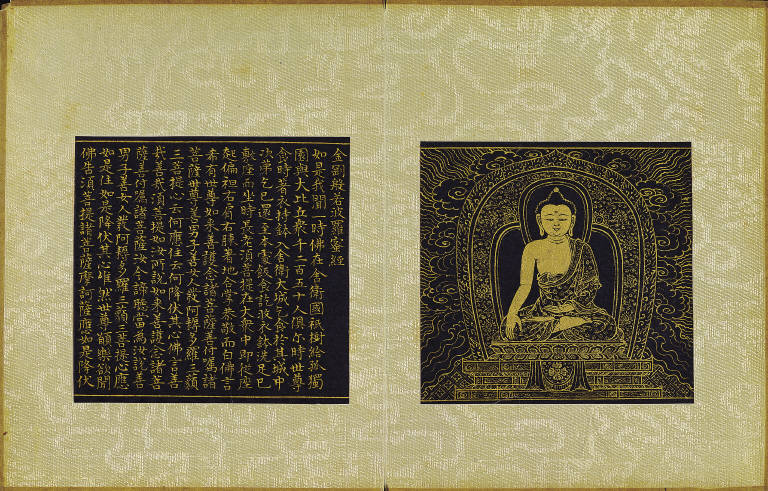 金剛般若波羅蜜經
如是我聞一時佛在舍衛國祇樹給孤獨
園與大比丘衆千二百五十人俱尔時世尊
食時著衣持鉢入舍衛大城乞食於其城中
次第乞已還至本處飯食訖收衣鉢洗足已
敷座而坐時長老須菩提在大衆中即從座
起偏袒右肩右膝著地合掌恭敬而白佛言
希有世尊如来善護念諸菩薩善付囑諸
菩薩世尊善男子善女人發阿耨多羅三藐
三菩提心云何應住云何降伏其心佛言善
哉善哉須菩提如汝所說如来善護念諸菩
薩善付囑諸菩薩汝今諦聽當為汝說善
男子善女人發阿耨多羅三藐三菩提心應
如是住如是降伏其心唯然世尊願樂欲聞
佛告須菩提諸菩薩摩訶薩應如是降伏